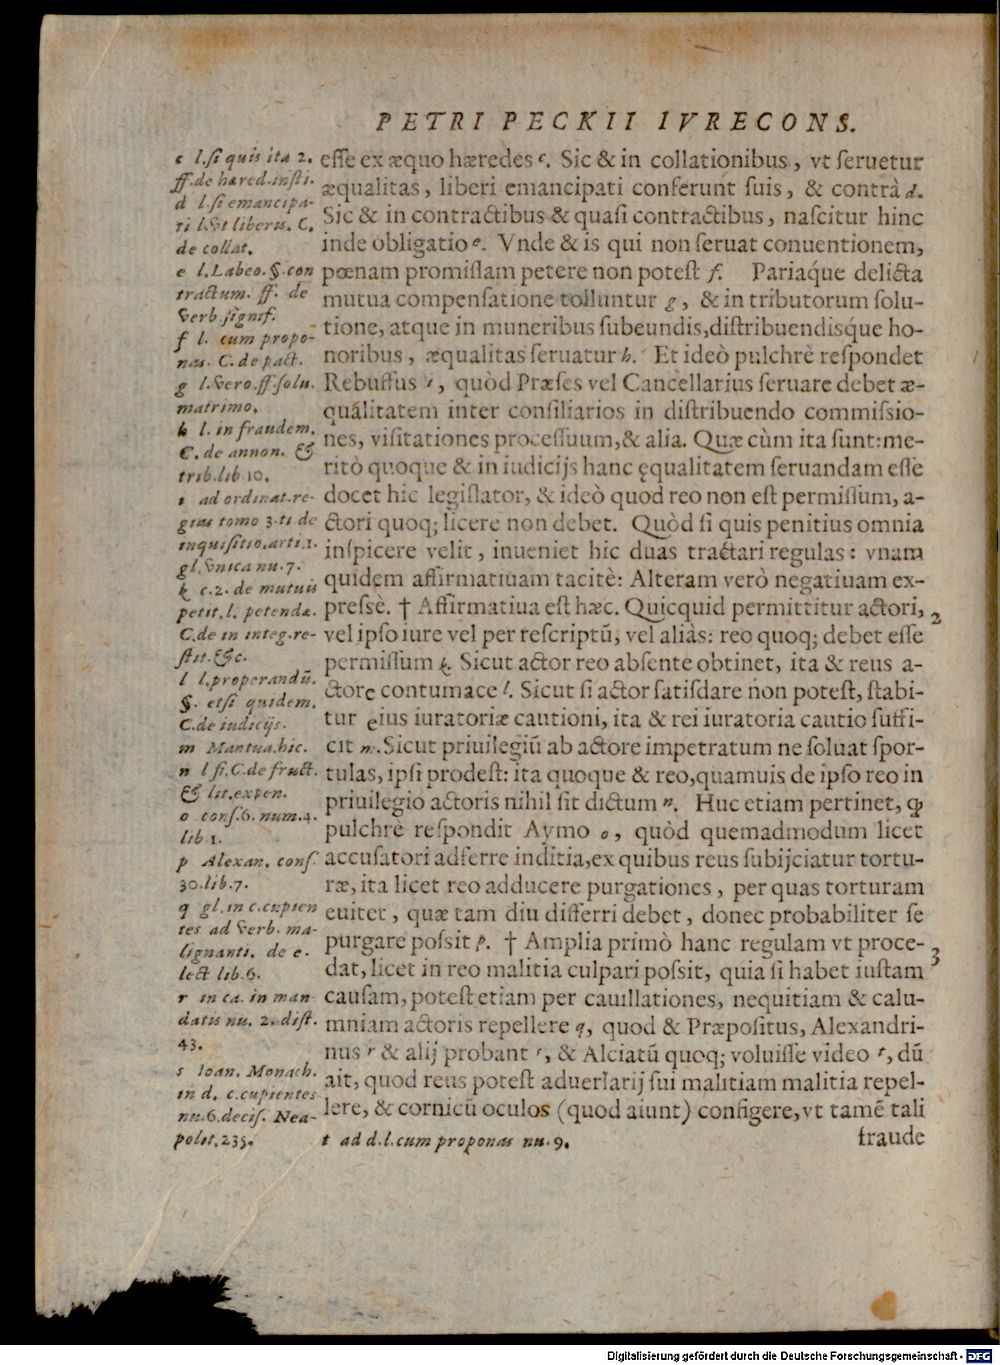 PETRI PECKII IVRECONS.
c l.ſi quis ita 2.
ff.de hæred.inſti.
d l.ſi emancipa-
ti l.vt liberis. C.
de collat.
e l.Labeo.§.con
tractum. ff. de
verb.ſignif.
f l. cum propo-
nas. C. de pact.
g l.vero.ff.ſolu.
matrimo.
h l. in fraudem.
C. de annon. &
trib.lib 10.
i ad ordinat.re-
gias tomo 3.ti de
inquiſitio.arti.1.
gl.vnica nu.7.
k c.2. de mutuis
petit.l. petendæ.
C.de in integ.re-
ſtit.&c.
l l.properandū.
§. etſi quidem.
C.de iudicijs.
m Mantua.hic.
n l ſi.C.de fruct.
& lit.expen.
o conſ.6. num.4.
lib.1.
p Alexan. conſ.
30.lib.7.
q gl.in c.cupien
tes ad verb. ma-
lignanti. de e.
lect lib.6.
r in ca. in man
datis nu. 2. diſt.
43.
s Ioan. Monach.
in d. c.cupientes
nu.6.deciſ. Nea-
polit.235.
eſſe ex æquo hæredes c. Sic & in collationibus, vt ſeruetur
æqualitas, liberi emancipati conferunt ſuis, & contrà d.
Sic & in contractibus & quaſi contractibus, naſcitur hinc
inde obligatio e. Vnde & is qui non ſeruat conuentionem,
pœnam promiſſam petere non poteſt f. Pariaq́ue delicta
mutua compenſatione tolluntur g, & in tributorum ſolu-
tione, atque in muneribus ſubeundis,diſtribuendisq́ue ho-
noribus, æqualitas ſeruatur h. Et ideò pulchrè reſpondet
Rebuffus i, quòd Præſes vel Cancellarius ſeruare debet æ-
qualitatem inter conſiliarios in diſtribuendo commiſsio-
nes, viſitationes proceſſuum,& alia. Quæ cùm ita ſunt:me-
ritò quoque & in iudicijs hanc ęqualitatem ſeruandam eſſe
docet hic legiſlator, & ideò quod reo non eſt permiſſum, a-
ctori quoq; licere non debet. Quòd ſi quis penitius omnia
inſpicere velit, inueniet hic duas tractari regulas: vnam
quidem affirmatiuam tacitè: Alteram verò negatiuam ex-
preſsè. † Affirmatiua eſt hæc. Quicquid permittitur actori, 2
vel ipſo iure vel per reſcriptū, vel aliàs: reo quoq; debet eſſe
permiſſum k. Sicut actor reo abſente obtinet, ita & reus a-
ctore contumace l. Sicut ſi actor ſatiſdare non poteſt, ſtabi-
tur eius iuratoriæ cautioni, ita & rei iuratoria cautio ſuffi-
cit m.Sicut priuilegiū ab actore impetratum ne ſoluat ſpor-
tulas, ipſi prodeſt: ita quoque & reo,quamuis de ipſo reo in
priuilegio actoris nihil ſit dictum n. Huc etiam pertinet, ꝙ
pulchrè reſpondit Aymo o, quòd quemadmodum licet
accuſatori adferre inditia,ex quibus reus ſubijciatur tortu-
ræ, ita licet reo adducere purgationes, per quas torturam
euitet, quæ tam diu differri debet, donec probabiliter ſe
purgare poſsit p. † Amplia primò hanc regulam vt proce- 3
dat, licet in reo malitia culpari poſsit, quia ſi habet iuſtam
cauſam, poteſt etiam per cauillationes, nequitiam & calu-
mniam actoris repellere q, quod & Præpoſitus, Alexandri-
nus r & alij probant s, & Alciatū quoq; voluiſſe video t, dū
ait, quod reus poteſt aduerſarij ſui malitiam malitia repel-
lere, & cornicū oculos (quod aiunt) configere, vt tamē tali
t ad d.l.cum proponas nu.9. fraude
Digitalisierung gefördert durch die Deutsche Forschungsgemeinschaft - DFG